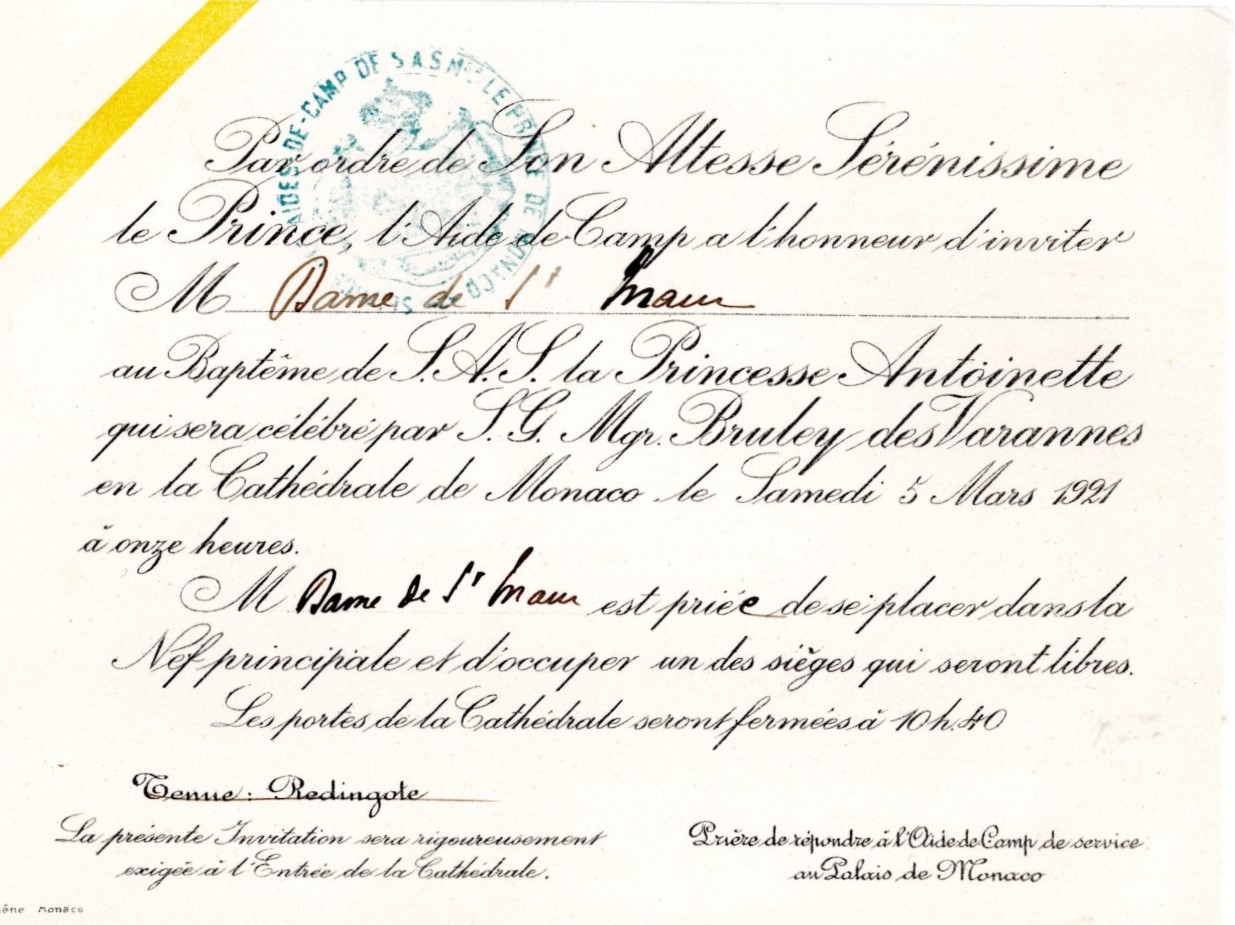 AIDES-DE-CAMP DE S.A.S. Mgr LE PRINCE DE MONACO
Par ordre de Son Altesse Sérénissime
le Prince, l'Aide de Camp a l'honneur d'inviter
M Dame de St Maur
au Baptême de S.A.S. la Princesse Antoinette
qui sera célébré par S.G. Mgr. Bruley des Varannes
en la Cathédrale de Monaco le Samedi 5 Mars 1921
à onze heures.
M Dame de St Maur est priée de se placer dans la
Nef principale et d'occuper un des sièges qui seront libres.
Les portes de la Cathédrale seront fermées à 10h.40
Tenue: Redingote
La présente Invitation sera rigoureusement
exigée à l'Entrée de la Cathédrale.
Prière de répondre à l'Aide de Camp de service
au Palais de Monaco
Monaco